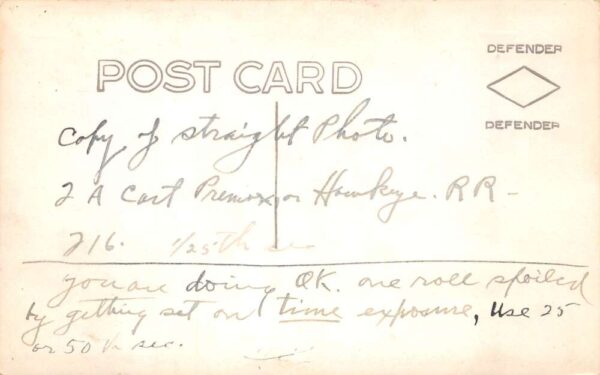 DEFENDER
POST CARD
DEFENDER
Copy of straight Photo.
2 A Cart Premo, or Hawkeye. RR -
716. 1/25th sec
You are doing OK. one roll spoiled
by getting set on time exposure, Use 25
or 50th sec.